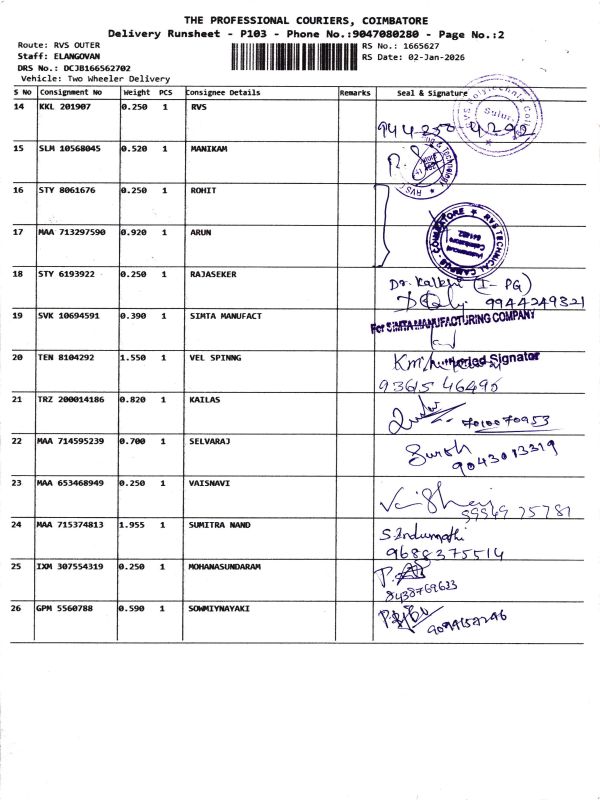 THE PROFESSIONAL COURIERS, COIMBATORE
Delivery Runsheet - P103 - Phone No.:9047080280 - Page No.:2
Route: RVS OUTER RS No.: 1665627
Staff: ELANGOVAN RS Date: 02-Jan-2026
DRS No.: DCJB166562702
Vehicle: Two Wheeler Delivery
S No Consignment No Weight PCS Consignee Details Remarks Seal & Signature
14 KKL 201907 0.250 1 RVS
15 SLM 10568045 0.520 1 MANIKAM
16 STY 8061676 0.250 1 ROHIT
17 MAA 713297590 0.920 1 ARUN
RVS TECHNICAL CAMPUS - COIMBATORE
18 STY 6193922 0.250 1 RAJASEKER
(I - PG)
9944249321
19 SVK 10694591 0.390 1 SIMTA MANUFACT
For SIMTA MANUFACTURING COMPANY
20 TEN 8104292 1.550 1 VEL SPINNG
Signator
93615 46495
21 TRZ 200014186 0.820 1 KAILAS
7010070953
22 MAA 714595239 0.700 1 SELVARAJ
Suresh
9043013319
23 MAA 653468949 0.250 1 VAISNAVI
24 MAA 715374813 1.955 1 SUMITRA NAND
S.Indumathi
9688375514
25 IXM 307554319 0.250 1 MOHANASUNDARAM
8438769623
26 GPM 5560788 0.590 1 SOWMIYNAYAKI